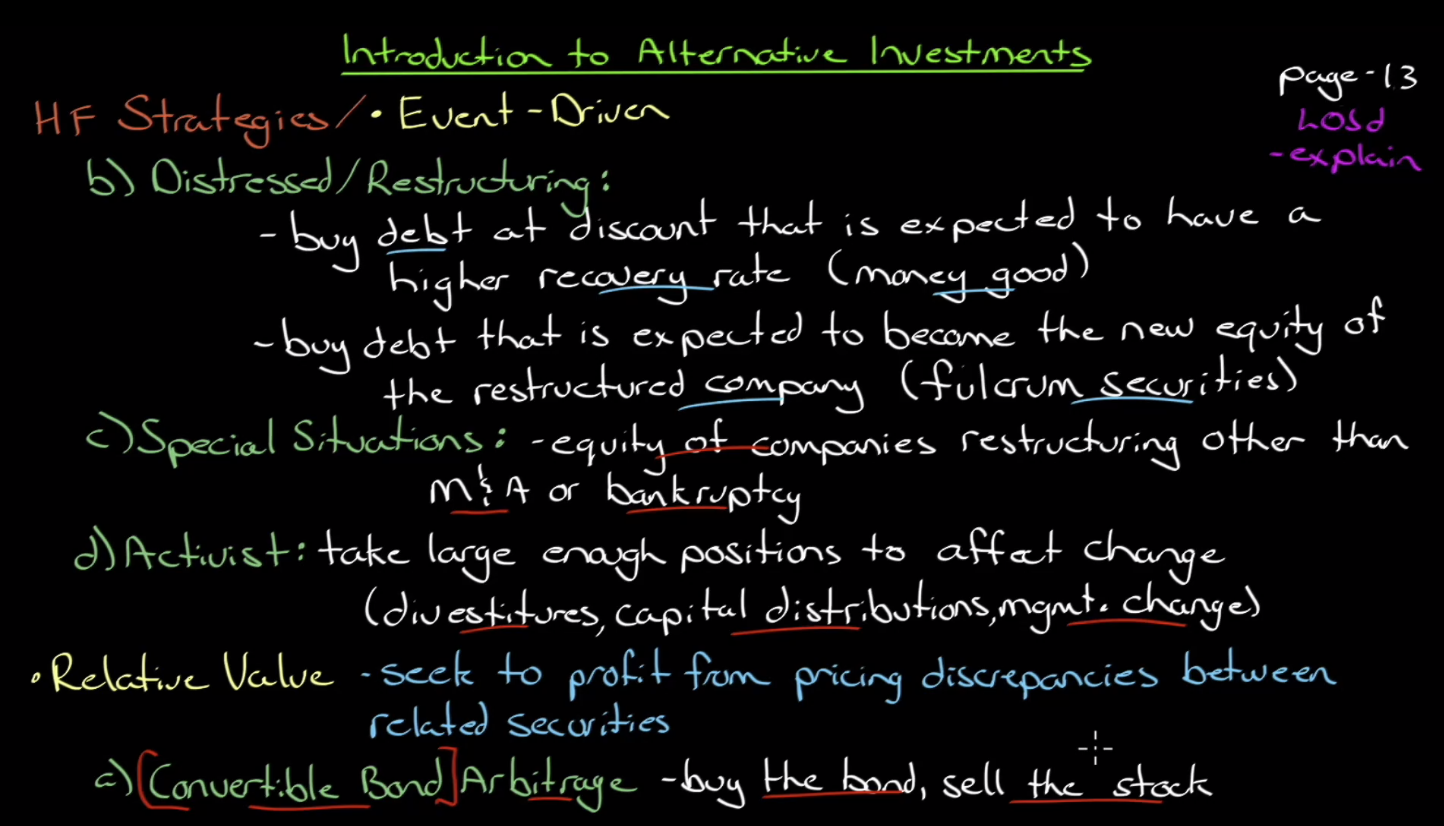 Introduction to Alternative Investments
page - 13
LOSd
- explain
HF Strategies / • Event - Driven
b) Distressed/Restructuring:
- buy debt at discount that is expected to have a
higher recovery rate (money good)
- buy debt that is expected to become the new equity of
the restructured company (fulcrum securities)
c) Special Situations: - equity of companies restructuring other than
M & A or bankruptcy
d) Activist: take large enough positions to affect change
(divestitures, capital distributions, mgmt. change)
• Relative Value - seek to profit from pricing discrepancies between
related securities
a) [Convertible Bond] Arbitrage - buy the bond, sell the stock